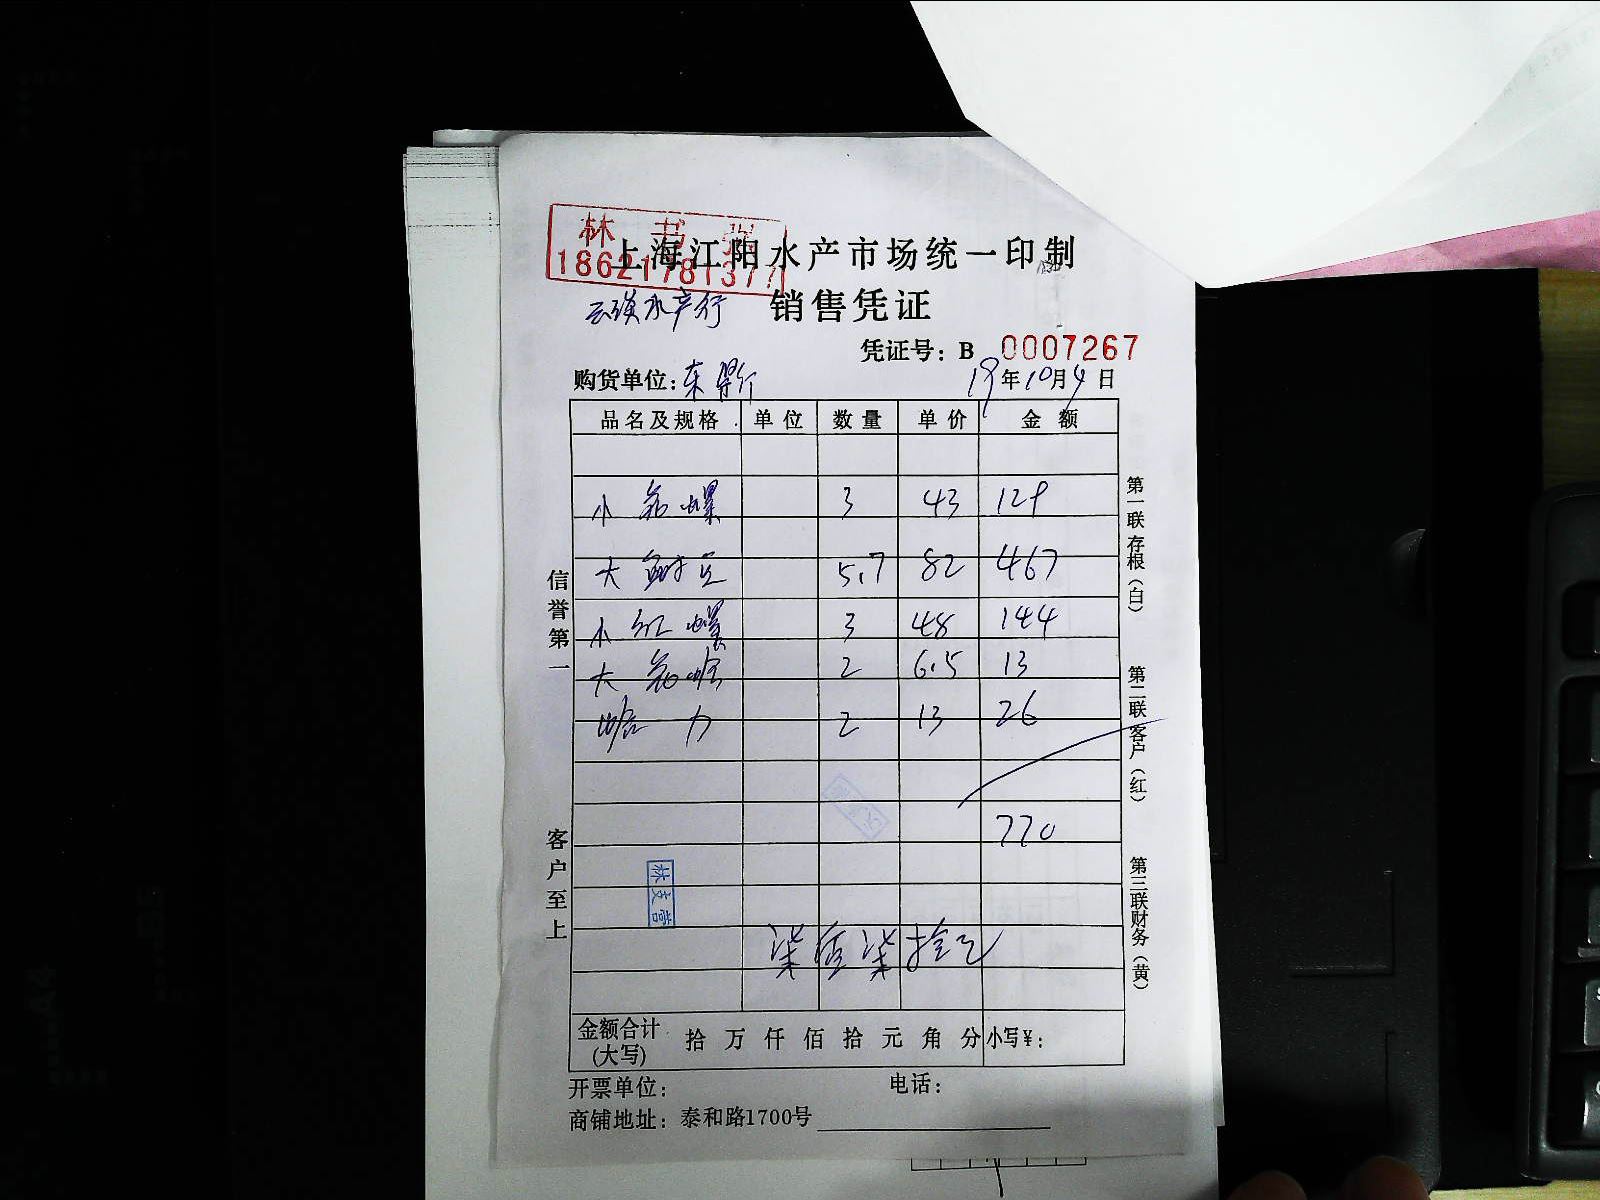 林书
18621781377
上海江阳水产市场统一印制
水产行 销售凭证
凭证号：B 0007267
购货单位：东 19年10月4日
品名及规格 单位 数量 单价 金额
小 螺 3 43 129
大 5.7 82 467
小红螺 3 48 144
大 2 6.5 13
2 13 26
770
柒佰柒拾元
金额合计(大写) 拾 万 仟 佰 拾 元 角 分 小写￥：
开票单位： 电话：
商铺地址：泰和路1700号
信誉第一
客户至上
第一联存根（白）
第二联客户（红）
第三联财务（黄）